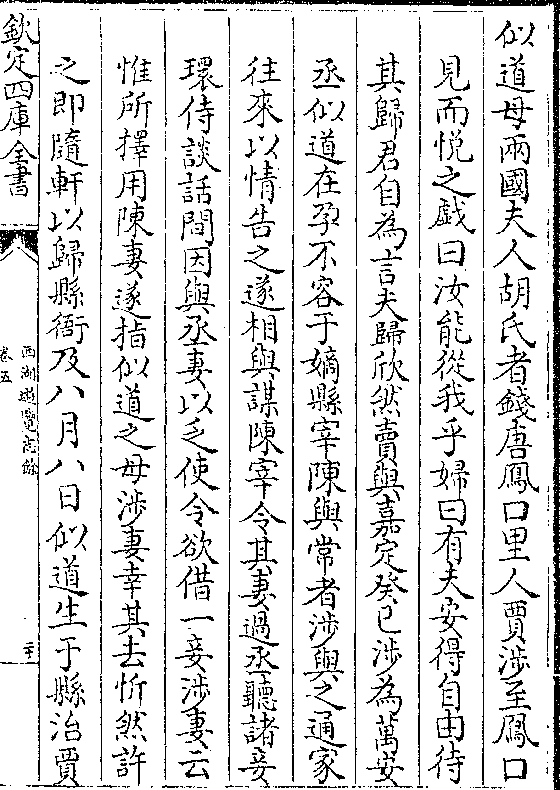 似道母兩國夫人胡氏者錢唐鳳口里人賈涉至鳳口
見而悅之戲曰汝能從我乎婦曰有夫安得自由待
其歸君自為言夫歸欣然賣與嘉定癸巳涉為萬安
丞似道在孕不容于嫡縣宰陳與常者涉與之通家
往來以情告之遂相與謀陳宰令其妻過丞聽諸妾
環侍談話間因與丞妻以乏使令欲借一妾涉妻云
惟所擇用陳妻遂指似道之母涉妻幸其去忻然許
之即隨軒以歸縣衙及八月八日似道生于縣治賈
欽定四庫全書
西湖遊覽志餘
卷五
二十